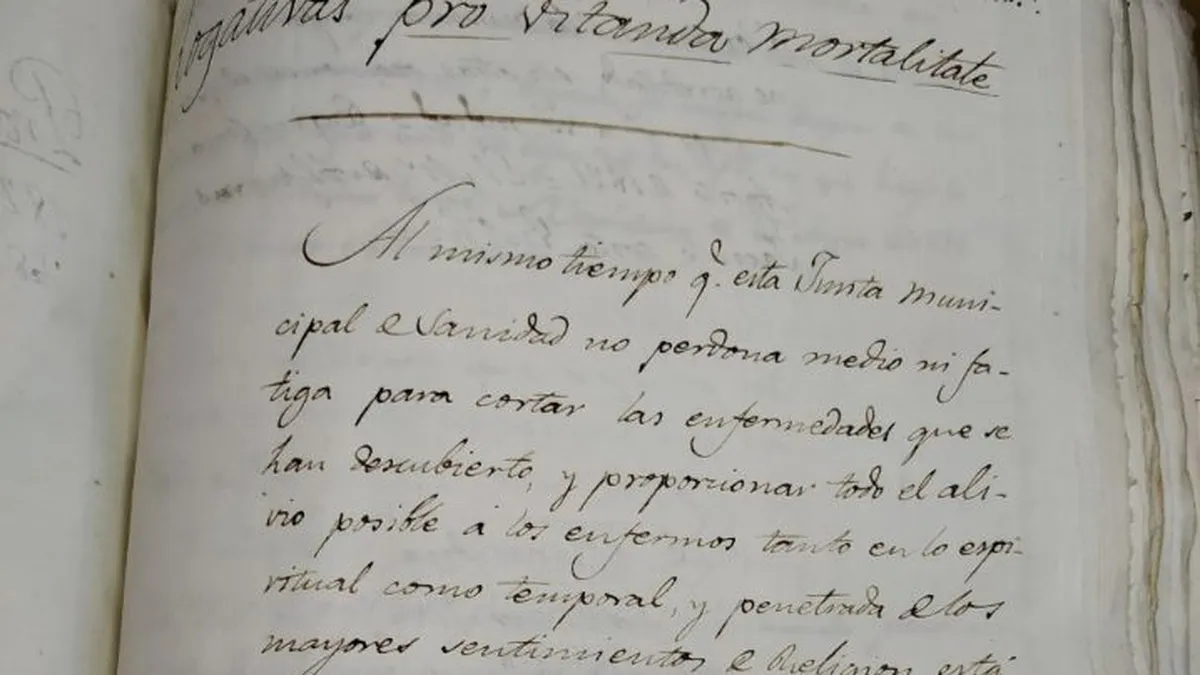 rogativas pro vitanda mortalitate
Al mismo tiempo q.e esta Junta muni-
cipal de Sanidad no perdona medio ni fa-
tiga para cortar las enfermedades que se
han descubierto, y proporcionar todo el ali-
vio posible á los enfermos tanto en lo espi-
ritual como temporal, y penetrada de los
mayores sentimientos de Religion está